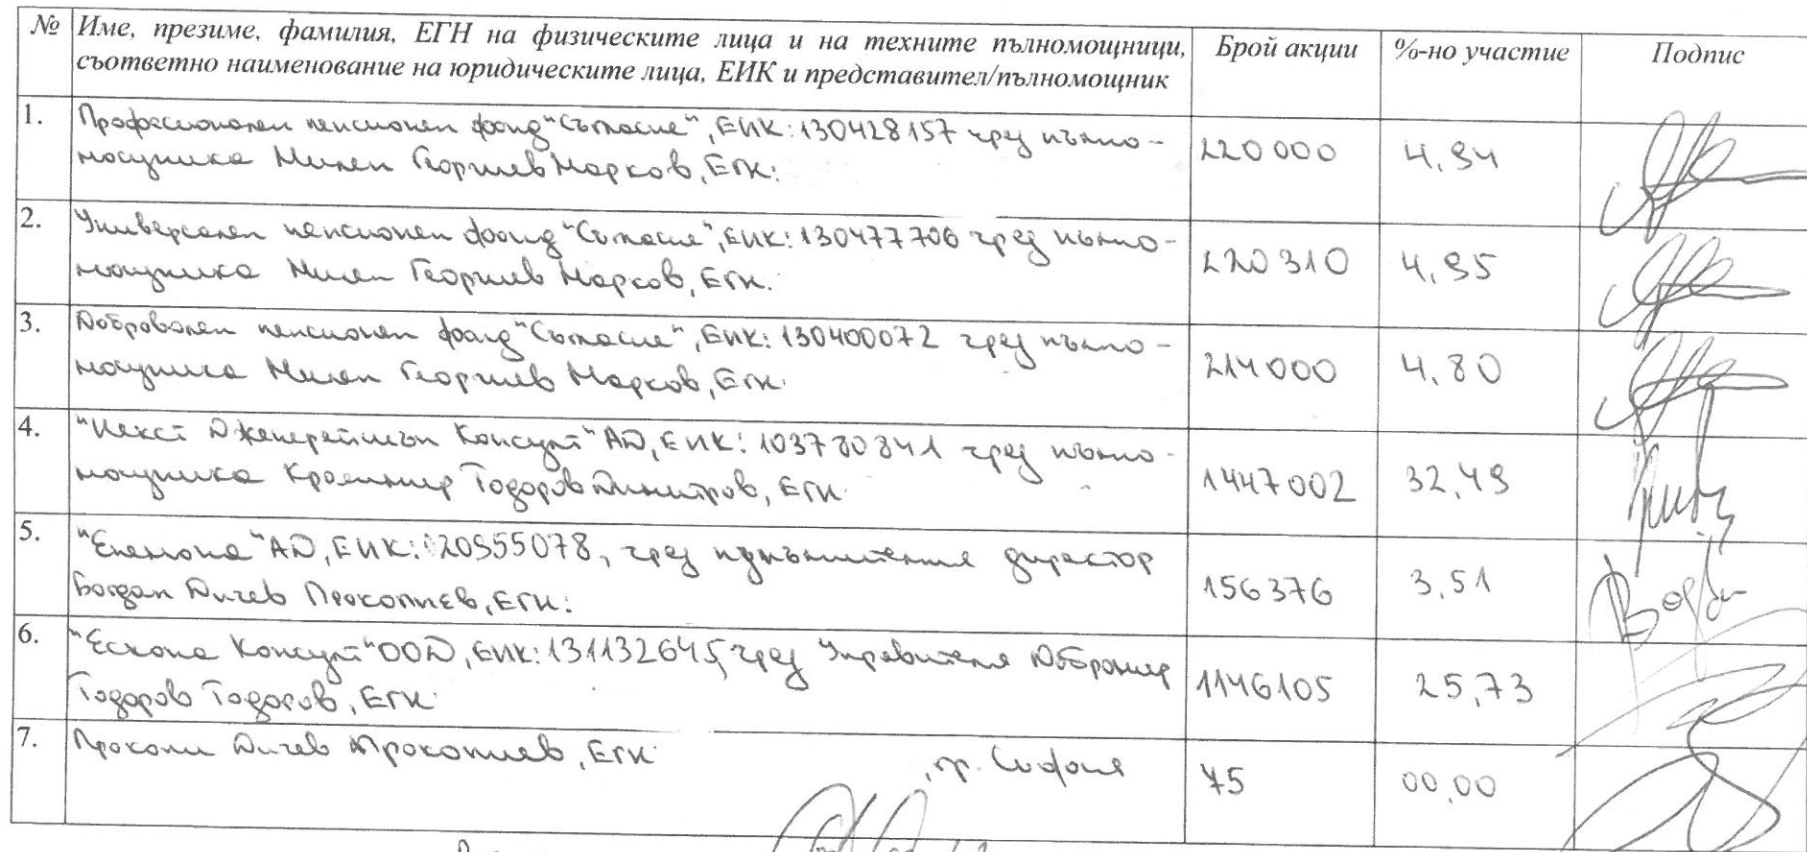 № Име, презиме, фамилия, ЕГН на физическите лица и на техните пълномощници, съответно наименование на юридическите лица, ЕИК и представител/пълномощник Брой акции %-но участие Подпис
1. Професионален пенсионен фонд "Съгласие", ЕИК: 130428157 чрез пълно-
мощника Милен Георгиев Марков, ЕГН: 220000 4,94
2. Универсален пенсионен фонд "Съгласие", ЕИК: 130477706 чрез пълно-
мощника Милен Георгиев Марков, ЕГН: 220310 4,95
3. Доброволен пенсионен фонд "Съгласие", ЕИК: 130400072 чрез пълно-
мощника Милен Георгиев Марков, ЕГН: 214000 4,80
4. "Некст Дженерейшън Консулт" АД, ЕИК: 103780841 чрез пълно-
мощника Красимир Тодоров Димитров, ЕГН: 1447002 32,49
5. АД, ЕИК: 020955078, чрез изпълнителния директор
Богдан Дичев Прокопиев, ЕГН: 156376 3,51
6. "Ескана Консулт" ООД, ЕИК: 131132645, чрез Управителя Добромир
Тодоров Тодоров, ЕГН: 1146105 25,73
7. Прокопи Дичев Прокопиев, ЕГН: , гр. София 75 00,00